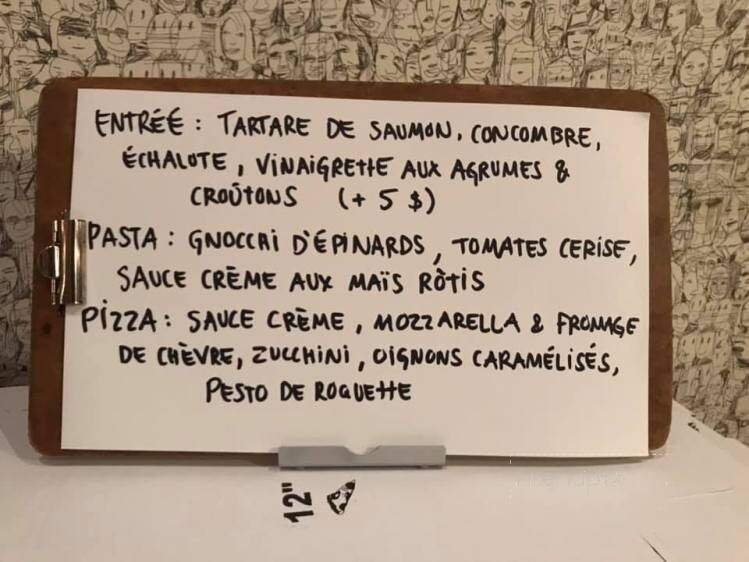 ENTRÉE : TARTARE DE SAUMON, CONCOMBRE,
ÉCHALOTE, VINAIGRETTE AUX AGRUMES &
CROÛTONS (+ 5 $)
PASTA : GNOCCHI D'ÉPINARDS, TOMATES CERISE,
SAUCE CRÈME AUX MAÏS RÔTIS
PIZZA : SAUCE CRÈME, MOZZARELLA & FROMAGE
DE CHÈVRE, ZUCCHINI, OIGNONS CARAMÉLISÉS,
PESTO DE ROQUETTE
12"